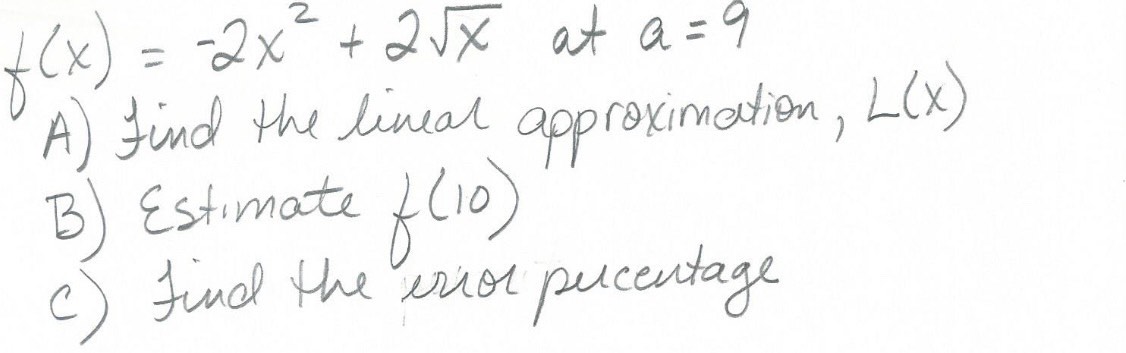 f(x) = -2x² + 2√x at a = 9
A) find the lineal approximation, L(x)
B) Estimate f(10)
C) find the error percentage